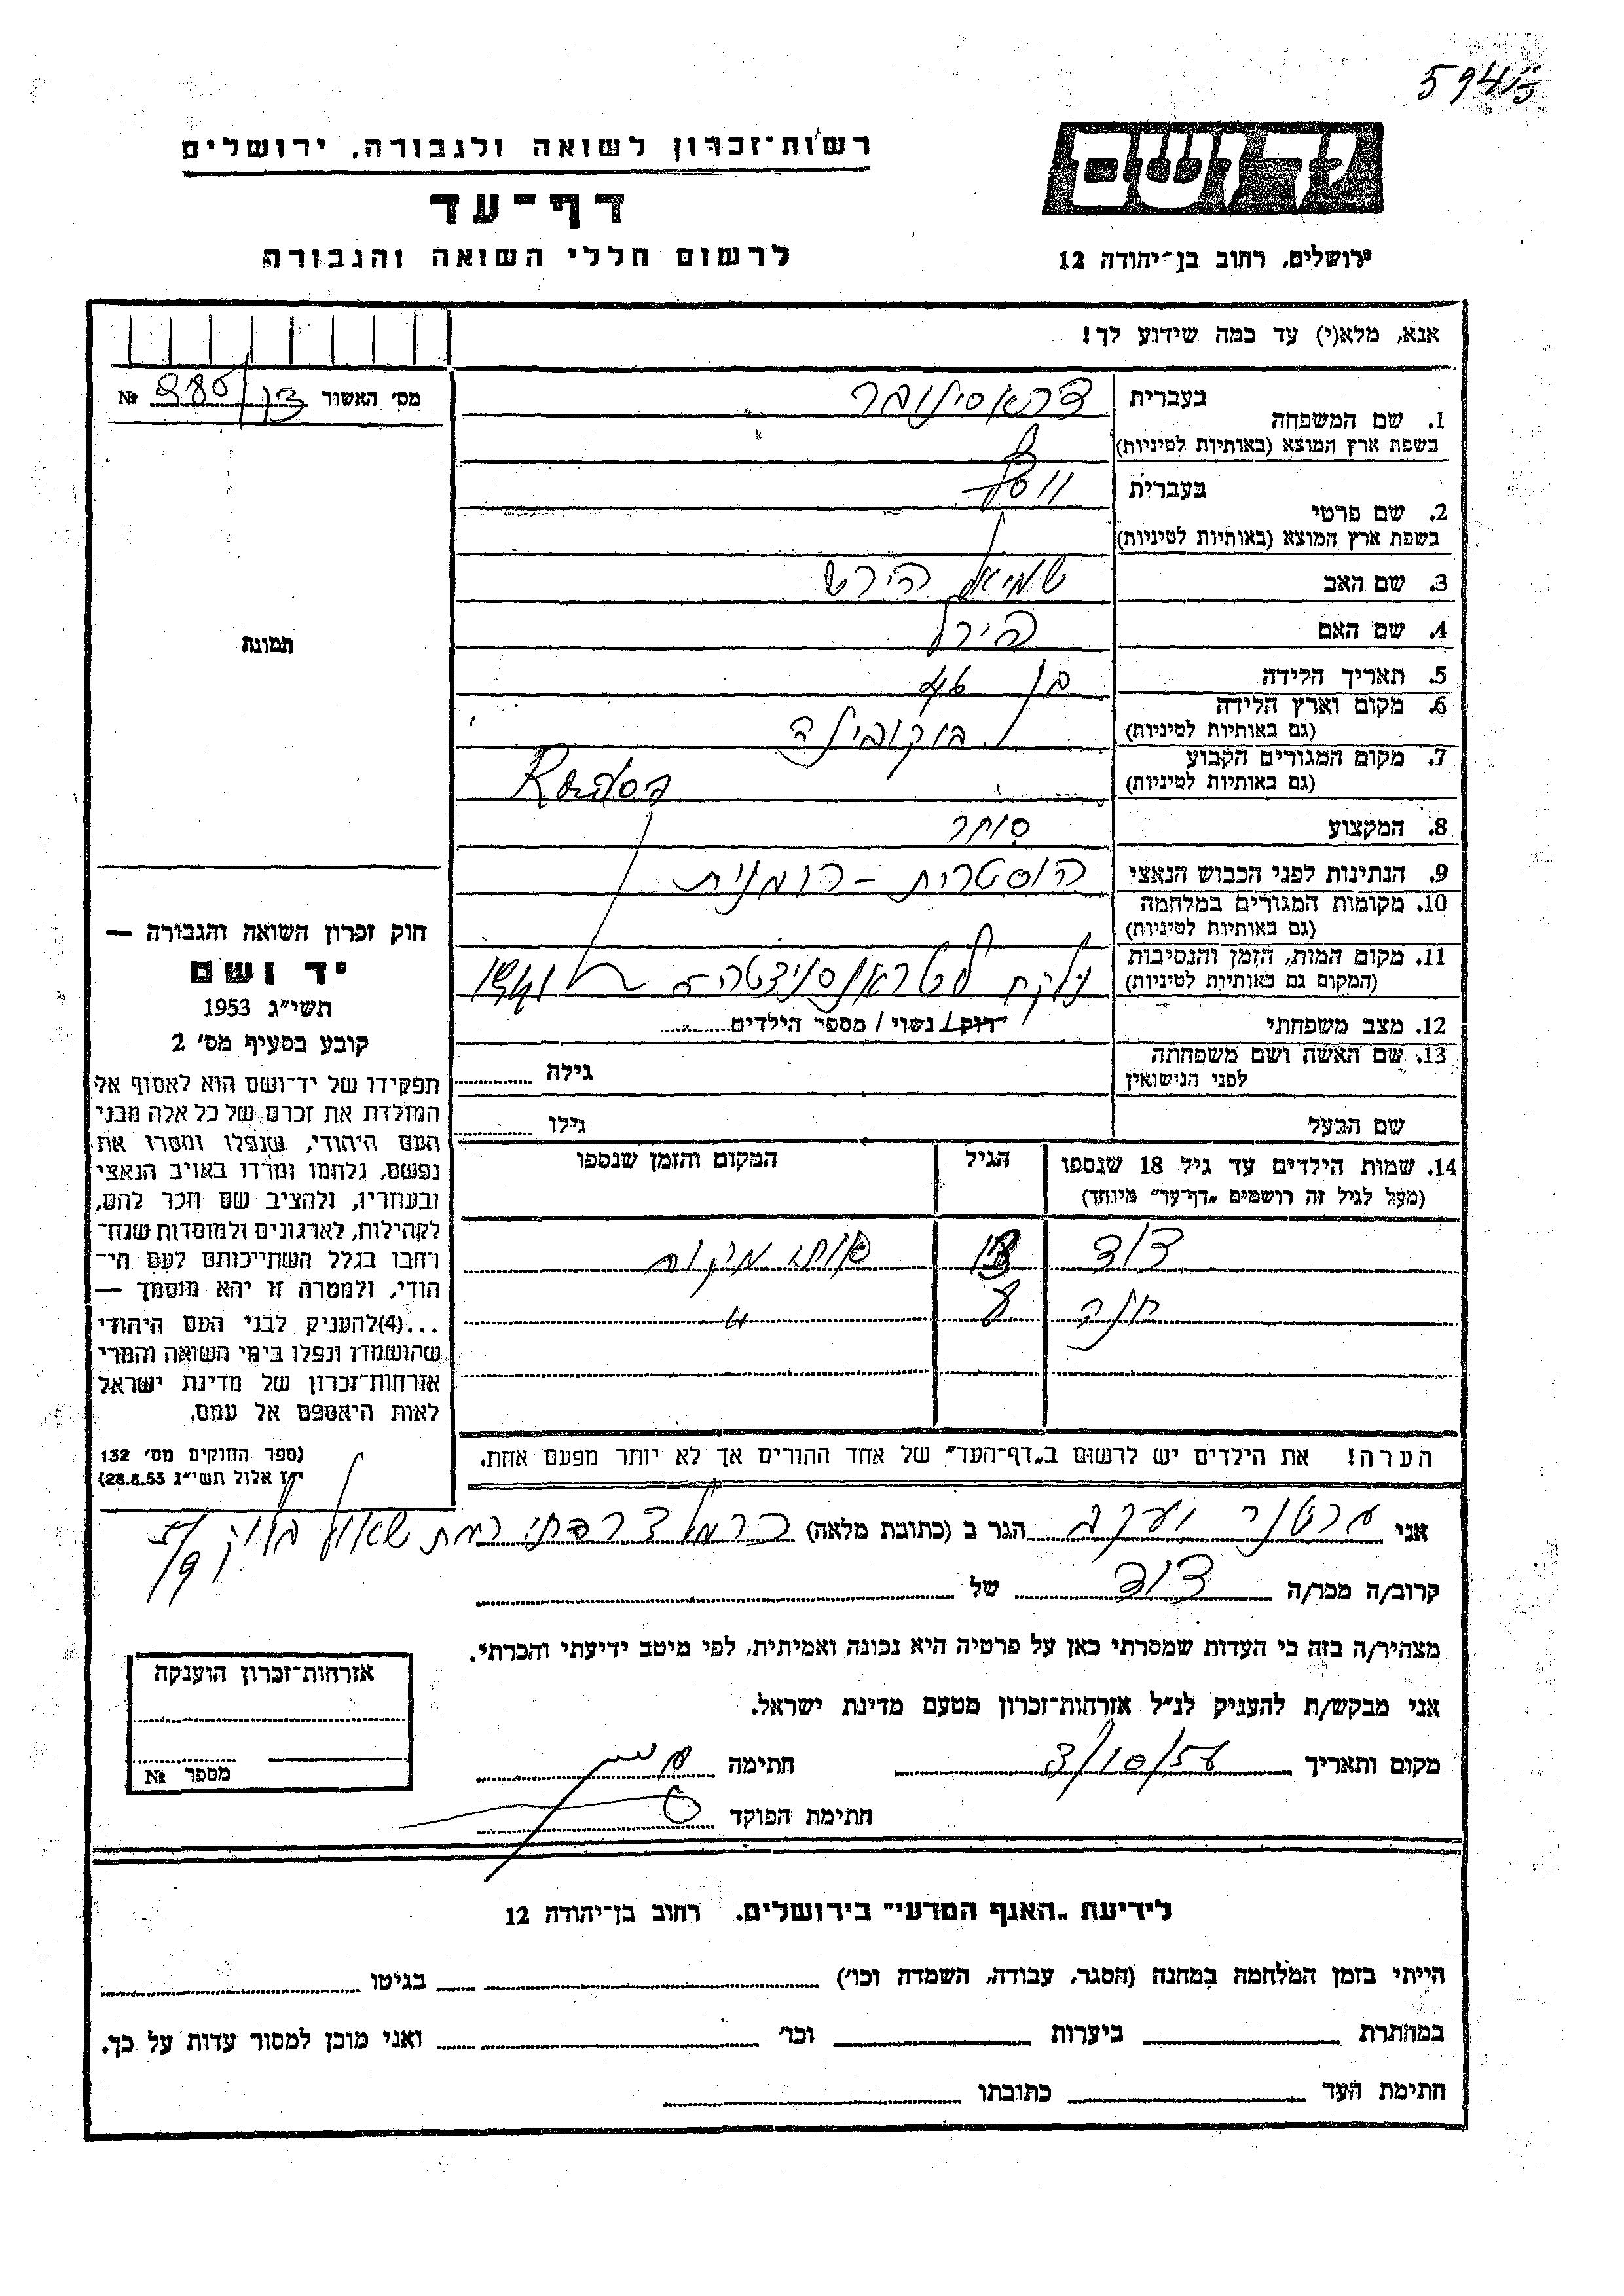 רשות־זכרון לשואה ולגבורה, ירושלים
דף־עד
לרשום חללי השואה והגבורה
ירושלים, רחוב בן־יהודה 12
אנא, מלא(י) עד כמה שידוע לך!
מס׳ האשור №
1. שם המשפחה
בעברית
בשפת ארץ המוצא (באותיות לטיניות)
2. שם פרטי
בעברית
בשפת ארץ המוצא (באותיות לטיניות)
3. שם האב שמואל הירש
4. שם האם פירל
5. תאריך הלידה בן
6. מקום וארץ הלידה בוקובינה
(גם באותיות לטיניות)
7. מקום המגורים הקבוע
(גם באותיות לטיניות)
8. המקצוע סוחר
9. הנתינות לפני הכבוש הנאצי אוסטרית - רומנית
10. מקומות המגורים במלחמה
(גם באותיות לטיניות)
11. מקום המות, הזמן והנסיבות נלקח לטראנסניסטריה 1941
(המקום גם באותיות לטיניות)
12. מצב משפחתי רווק / נשוי / מספר הילדים
13. שם האשה ושם משפחתה גילה
לפני הנישואין
שם הבעל גילו
14. שמות הילדים עד גיל 18 שנספו הגיל המקום והזמן שנספו
(מעל לגיל זה רושמים „דף־עד” מיוחד)
דוד אותו מקום
חנה 8 "
הערה! את הילדים יש לרשום ב„דף־העד” של אחד ההורים אך לא יותר מפעם אחת.
תמונה
חוק זכרון השואה והגבורה —
יד ושם
תשי״ג 1953
קובע בסעיף מס׳ 2
תפקידו של יד־ושם הוא לאסוף אל
המולדת את זכרם של כל אלה מבני
העם היהודי, שנפלו ומסרו את
נפשם, נלחמו ומרדו באויב הנאצי
ובעוזריו, ולהציב שם וזכר להם,
לקהילות, לארגונים ולמוסדות שנח־
רבו בגלל השתייכותם לעם הי־
הודי, ולמטרה זו יהא מוסמך —
...(4)להעניק לבני העם היהודי
שהושמדו ונפלו בימי השואה והמרי
אזרחות־זכרון של מדינת ישראל
לאות היאספם אל עמם.
(ספר החוקים מס׳ 132
י״ז אלול תשי״ג 28.8.53)
אני יעקב הגר ב (כתובת מלאה) רמת שאול בלוק
קרוב/ה מכר/ה דוד של
מצהיר/ה בזה כי העדות שמסרתי כאן על פרטיה היא נכונה ואמיתית, לפי מיטב ידיעתי והכרתי.
אני מבקש/ת להעניק לנ״ל אזרחות־זכרון מטעם מדינת ישראל.
מקום ותאריך 3/10/56 חתימה
חתימת הפוקד
אזרחות־זכרון הוענקה
מספר №
לידיעת „האגף המדעי” בירושלים. רחוב בן־יהודה 12
הייתי בזמן המלחמה במחנה (הסגר, עבודה, השמדה וכו׳) בגיטו
במחתרת ביערות וכו׳ ואני מוכן למסור עדות על כך.
חתימת העד כתובתו